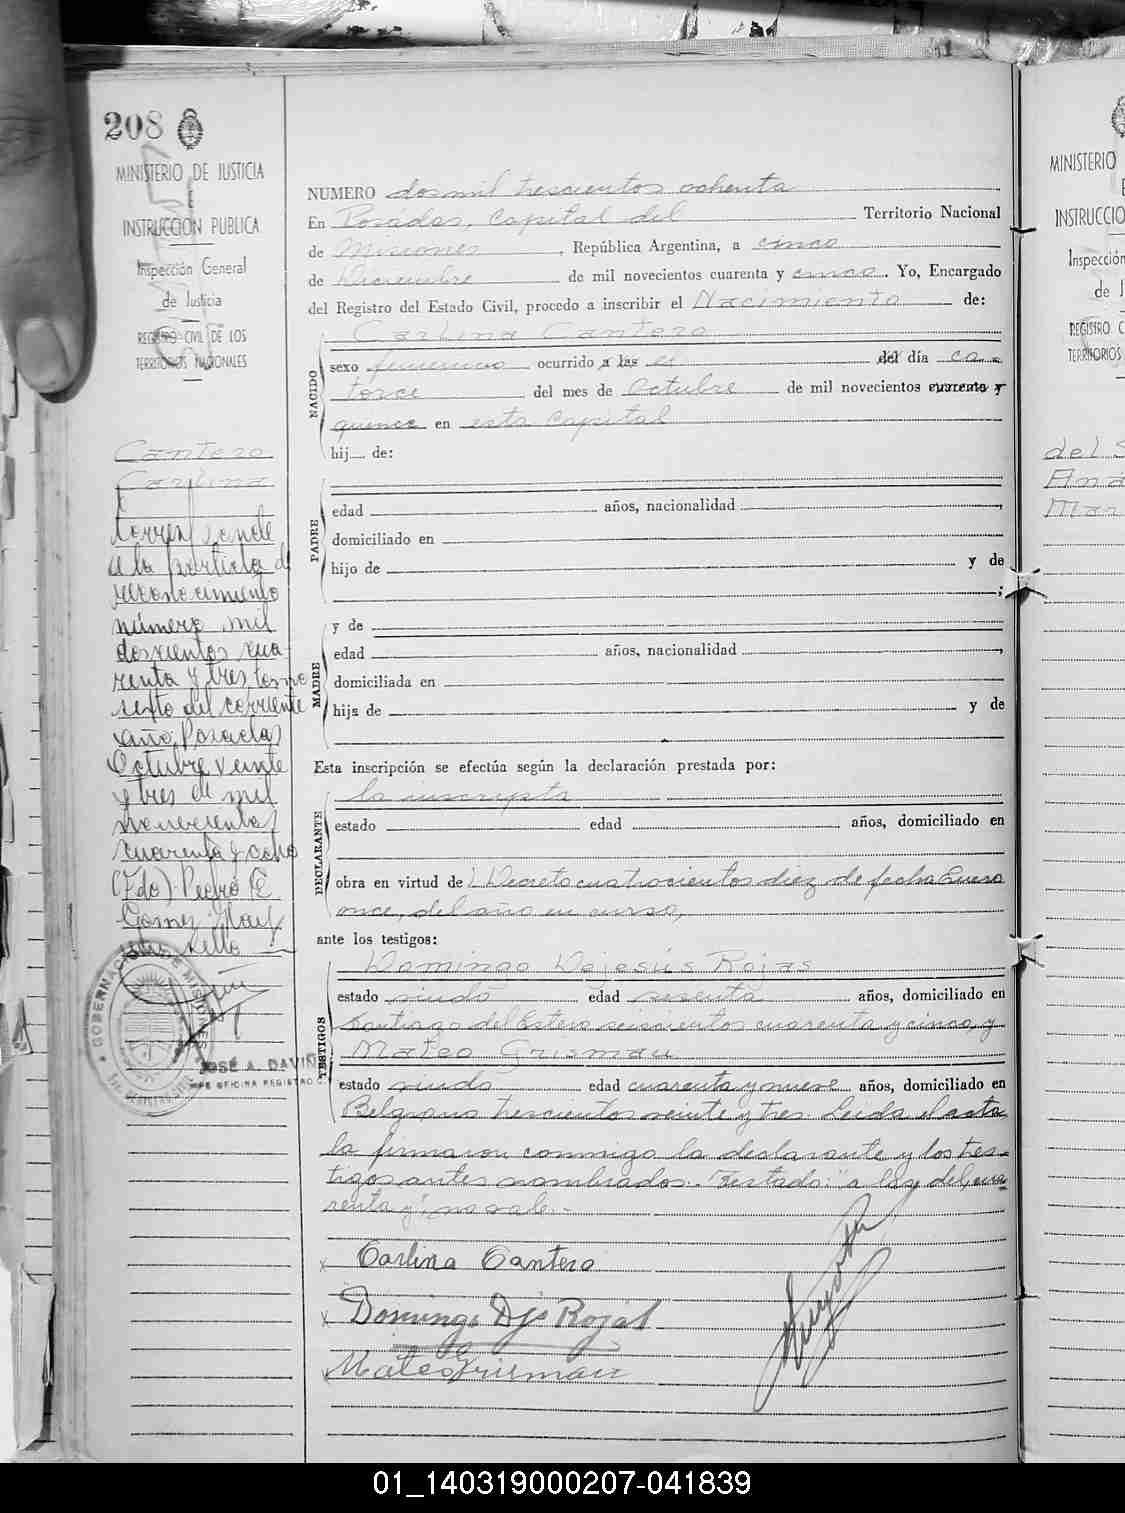 208
MINISTERIO DE JUSTICIA
E
INSTRUCCION PUBLICA
Inspección General
de Justicia
REGISTRO CIVIL DE LOS
TERRITORIOS NACIONALES
Cantero
Carlina
Corresponde
a la partida de
reconocimiento
número mil
doscientos cua
renta y tres tomo
sexto del corriente
año, Posadas
Octubre veinte
y tres de mil
novecientos
cuarenta y ocho
(Fdo) Pedro E
Gomez
sello
GOBERNACION DE MISIONES
JOSÉ A. DAVIÑA
JEFE OFICINA REGISTRO C.
NUMERO dos mil trescientos ochenta
En Posadas, capital del Territorio Nacional
de Misiones, República Argentina, a cinco
de Diciembre de mil novecientos cuarenta y cinco. Yo, Encargado
del Registro del Estado Civil, procedo a inscribir el Nacimiento de:
NACIDO
Carlina Cantero
sexo femenino ocurrido a las el del día ca-
torce del mes de Octubre de mil novecientos cuarenta y
quince en esta Capital
hij de:
PADRE
edad años, nacionalidad ,
domiciliado en
hijo de y de
;
MADRE
y de
edad años, nacionalidad ,
domiciliada en
hija de y de
Esta inscripción se efectúa según la declaración prestada por:
DECLARANTE
la inscripta
estado edad años, domiciliado en
obra en virtud del Decreto cuatrocientos diez de fecha Enero
once, del año en curso,
ante los testigos:
TESTIGOS
Domingo Dejesús Rojas
estado viudo edad sesenta años, domiciliado en
Santiago del Estero seiscientos cuarenta y cinco, y
Mateo Grismau
estado viudo edad cuarenta y nueve años, domiciliado en
Belgrano trescientos veinte y tres. Leida el acta
la firmaron conmigo la declarante y los tes-
tigos antes nombrados.- Testado: "a las y del, cua
renta y", no vale.-
Carlina Cantero
Domingo Djs Rojas
Mateo Grismau
MINISTERIO
INSTRUCCIO
Inspección
de J
REGISTRO C
TERRITORIOS
del S
Ana
Mar
01_140319000207-041839